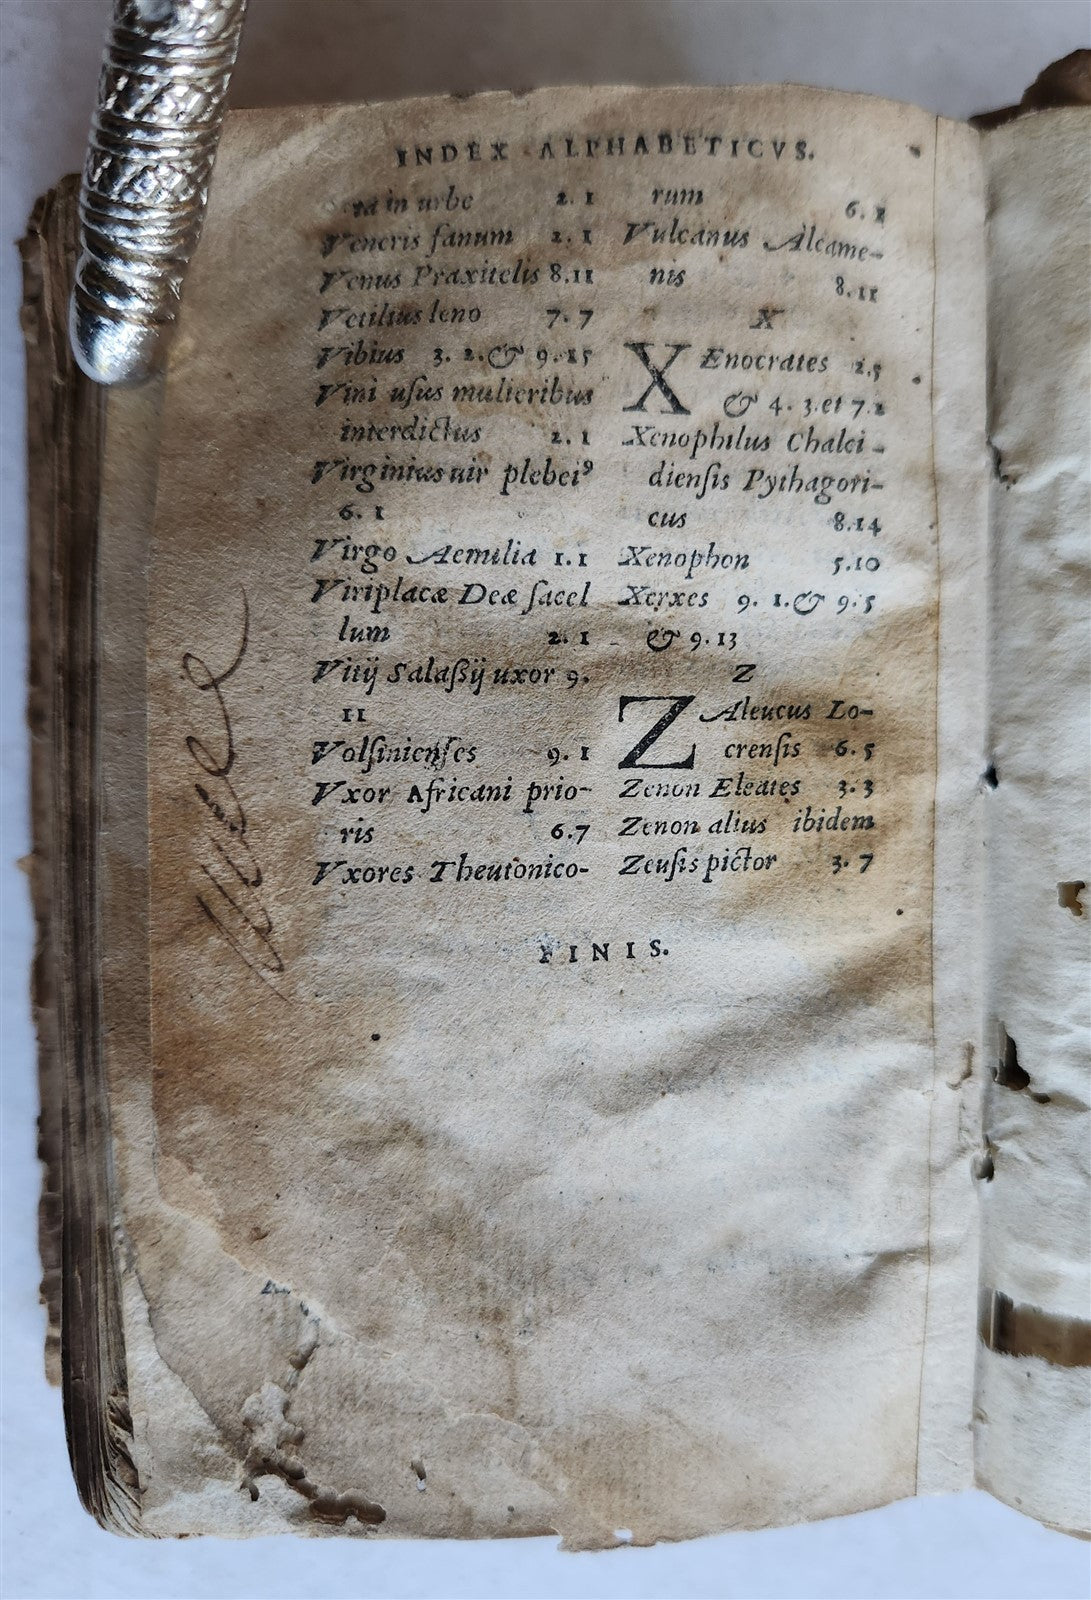 INDEX ALPHABETICVS.
ra in urbe 2. 1
Veneris fanum 2. 1
Venus Praxitelis 8.11
Vetilius leno 7. 7
Vibius 3. 2. & 9. 15
Vini uſus mulieribus
interdictus 2. 1
Virginius uir plebeiꝰ
6. 1
Virgo Aemilia 1.1
Viriplacæ Deæ ſacel
lum 2. 1
Vitij Salaſſij uxor 9.
11
Volſinienſes 9. 1
Vxor Africani prio-
ris 6.7
Vxores Theutonico-
rum 6. 1
Vulcanus Alcame-
nis 8. 11
X
XEnocrates 2.5
& 4. 3. et 7. 2
Xenophilus Chalci-
dienſis Pythagori-
cus 8.14
Xenophon 5.10
Xerxes 9. 1. & 9. 5
& 9. 13
Z
ZAleucus Lo-
crenſis 6. 5
Zenon Eleates 3. 3
Zenon alius ibidem
Zeuſis pictor 3. 7
FINIS.